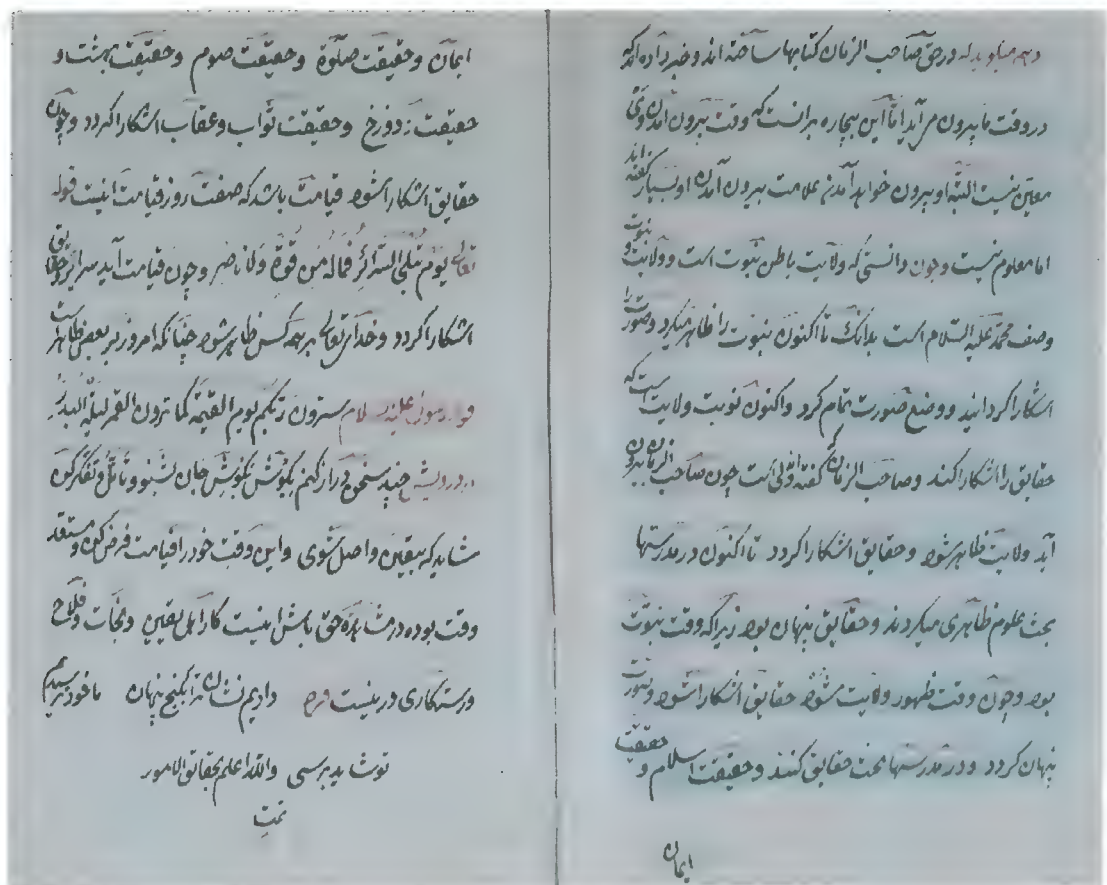 در حق صاحب الزمان کتابها ساخته اند و خبر داده اند که
در وقت ما بیرون می آید اما این بیچاره بر انست که وقت بیرون آمدن وی
معین نیست البته او بیرون خواهد آمدن علامت بیرون آمدن او بسیار گفته اند
اما معلوم نیست و چون دانستی که ولایت باطن نبوت است و ولایت و نبوت
وصف محمد علیه السلام است بدانک تا اکنون نبوت را ظاهر میکرد و صورت را
اشکارا گردانید و وضع صورت تمام کرد و اکنون نوبت ولایت است که
حقایق را اشکارا کند و صاحب الزمان که گفته اند ولی است چون صاحب الزمان بیرون
آید ولایت ظاهر شود و حقایق اشکارا گردد تا اکنون در مدرستها
بحث علوم ظاهری میکردند و حقایق پنهان بود زیرا که وقت نبوت
بود و چون وقت ظهور ولایت شود حقایق اشکارا شود و صورت
پنهان گردد و در مدرستها بحث حقایق کنند و حقیقت اسلام و حقیقت
ایمان
ایمان و حقیقت صلوة و حقیقت صوم و حقیقت بهشت و
حقیقت دوزخ و حقیقت ثواب و عقاب اشکارا گردد و چون
حقایق اشکارا شود قیامت باشد که صفت روز قیامت اینست قوله
تعالی یوم تبلی السرائر فماله من قوة ولا ناصر و چون قیامت آید سرایر و حقایق
اشکارا گردد و خدای تعالی بر همه کس ظاهر شود چنانکه امروز بر بعض ظاهر است
علیه السلام سترون ربکم یوم القیمة کما ترون القمر لیلة البدر
ای درویش چند سخن دراز کنم بگوش بگوش جان بشنو و تامل و تفکر کن
شاید که بیقین واصل شوی و این وقت خود را قیامت فرض کن و مستعد
وقت بوده در مشاهده حق باش اینست کار اهل یقین و نجات و فلاح
ورستگاری درینست دادیم نشان ترا بگنج پنهان ما خود نرسیدیم
تو شاید برسی والله اعلم بحقائق الامور
تمت